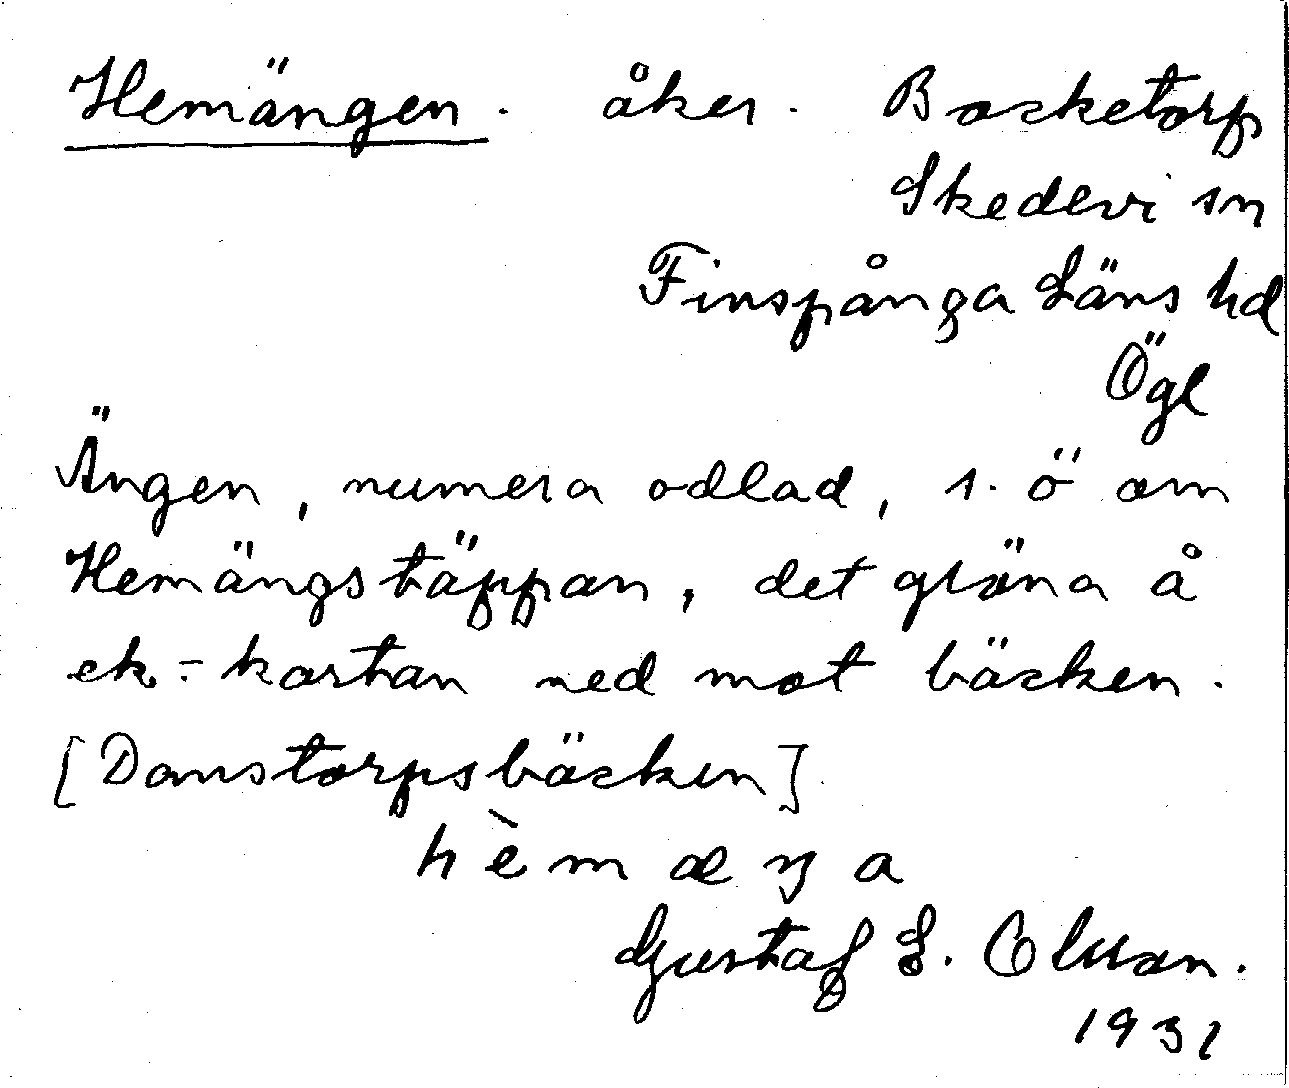 Hemängen. åker. Bocketorp
Skedevi sn
Finspånga Läns hd
Ögl
Ängen, numera odlad, s. ö om
Hemängstäppan, det gröna å
ek.-kartan ned mot bäcken.
[Danstorpsbäcken]
hèmæŋa
Gustaf L. Olsson.
1931